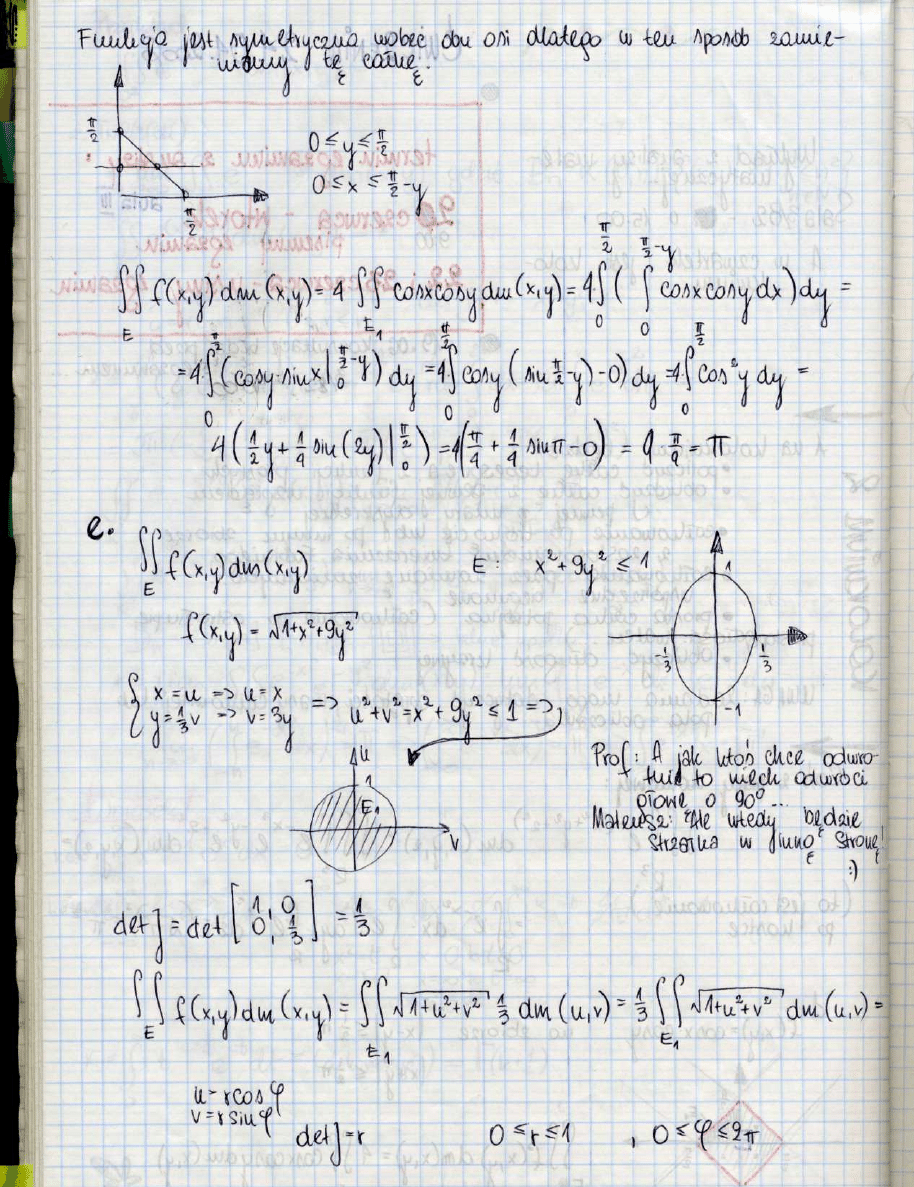 Funkcja jest symetryczna wobec obu osi dlatego w ten sposób zamie-
niamy tę całkę.
π/2
0 ≤ y ≤ π/2
0 ≤ x ≤ π/2 - y
π/2
∬_E f(x,y) dm(x,y) = 4 ∬_{E_1} cosxcosy dm(x,y) = 4 ∫_0^{π/2} ( ∫_0^{π/2-y} cosxcosy dx) dy =
= 4 ∫_0^{π/2} (cosy·sinx |_0^{π/2-y}) dy = 4 ∫_0^{π/2} cosy (sin(π/2-y)-0) dy = 4 ∫_0^{π/2} cos²y dy =
4 (1/2 y + 1/4 sin(2y) |_0^{π/2}) = 4(π/4 + 1/4 sinπ - 0) = 4·π/4 = π
e.
∬_E f(x,y) dm(x,y)
E: x² + 9y² ≤ 1
f(x,y) = √(1+x²+9y²)
1
-1/3
1/3
-1
{ x = u => u = x
y = 1/3 v => v = 3y
=> u² + v² = x² + 9y² ≤ 1 =>
u
1
E_1
v
Prof: A jak ktoś chce odwro-
tnie to niech odwróci
głowę o 90° ...
Mateusz: Ale wtedy będzie
strzałka w inną stronę!
:)
det J = det [1, 0
0, 1/3] = 1/3
∬_E f(x,y) dm(x,y) = ∬_{E_1} √(1+u²+v²) 1/3 dm(u,v) = 1/3 ∬_{E_1} √(1+u²+v²) dm(u,v) =
u = rcosφ
v = rsinφ
det J = r
0 ≤ r ≤ 1 , 0 ≤ φ ≤ 2π